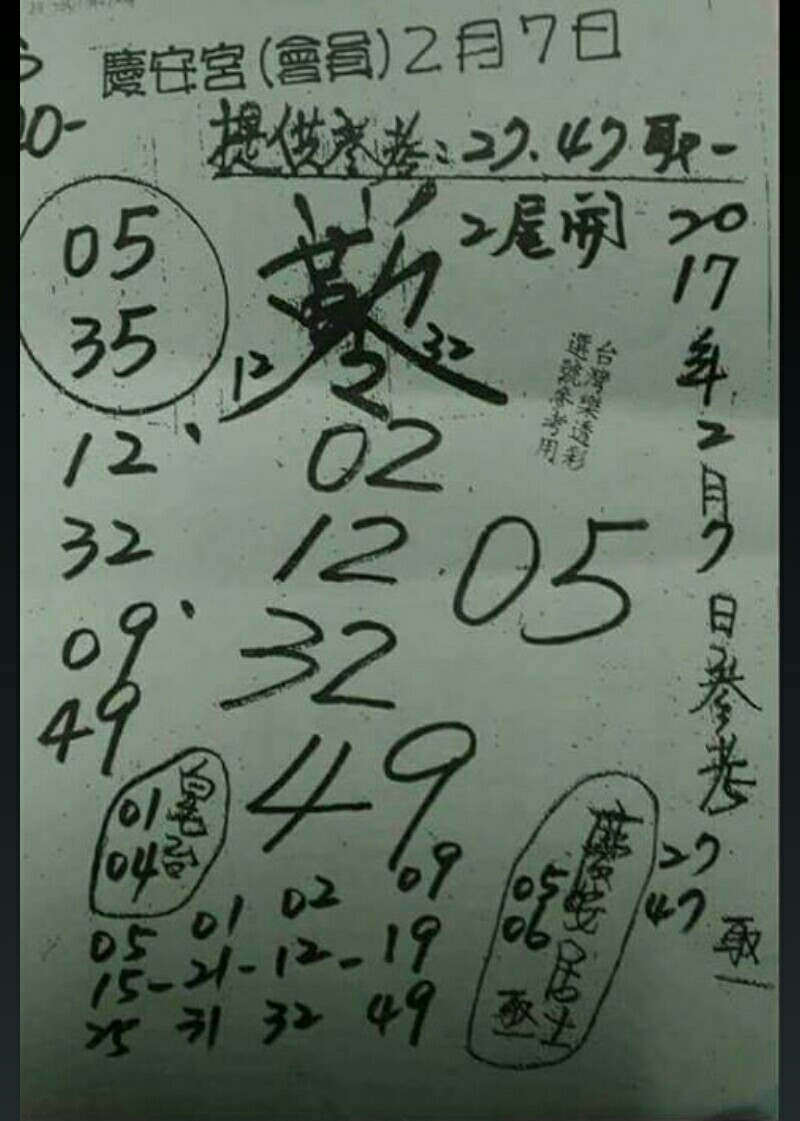 慶安宮(會員)2月7日
00-
提供參考:27.47取一
05
35
2尾開
12
32
2017年2月7日參考
27
47
取一
台灣樂透彩
選號參考用
12、
32
09、
49
02
12
32
49
05
01
04
慶安居士
05
06
取一
05 01 02 09
15-21-12-19
25 31 32 49